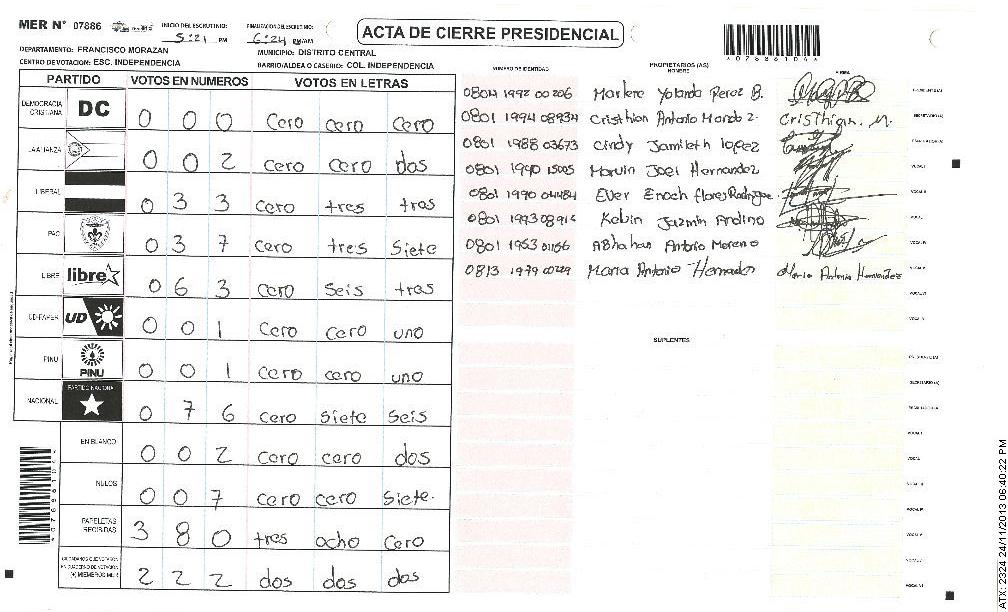 MER N° 07886 INICIO DEL ESCRUTINIO: 5:21 PM FINALIZACION DEL ESCRUTINIO: 6:24 PM/AM ACTA DE CIERRE PRESIDENCIAL
DEPARTAMENTO: FRANCISCO MORAZAN MUNICIPIO: DISTRITO CENTRAL
CENTRO DE VOTACION: ESC. INDEPENDENCIA BARRIO/ALDEA O CASERIO: COL. INDEPENDENCIA
PARTIDO VOTOS EN NUMEROS VOTOS EN LETRAS
DEMOCRACIA CRISTIANA DC 0 0 0 cero cero cero
LA ALIANZA 0 0 2 cero cero dos
LIBERAL 0 3 3 cero tres tres
PAC 0 3 7 cero tres siete
LIBRE libre 0 6 3 cero seis tres
UD-FAPER UD 0 0 1 cero cero uno
PINU PINU 0 0 1 cero cero uno
NACIONAL PARTIDO NACIONAL 0 7 6 cero siete seis
EN BLANCO 0 0 2 cero cero dos
NULOS 0 0 7 cero cero siete.
PAPELETAS RECIBIDAS 3 8 0 tres ocho cero
CIUDADANOS QUE VOTARON EN CUADERNO DE VOTACION (+) MIEMBROS MER 2 2 2 dos dos dos
NUMERO DE IDENTIDAD PROPIETARIOS (AS) NOMBRE FIRMA
0801 1992 00206 Marlene Yolanda Perez B. PRESIDENTE(A)
0801 1994 08934 Cristhian Antonio SECRETARIO(A)
0801 1988 03673 Cindy Jamileth lopez
0801 1990 15005 Marvin Joel Hernandez
0801 1990 04484 Ever Enoch flores Rodrigue
Kelvin Jazmin Andino
0801 1953 01166 Abhahan Antonio Moreno
0813 1979 Maria Antonia Hernadez Maria Antonia Hernandez
SUPLENTES
ATX: 2324 24/11/2013 06:40:22 PM